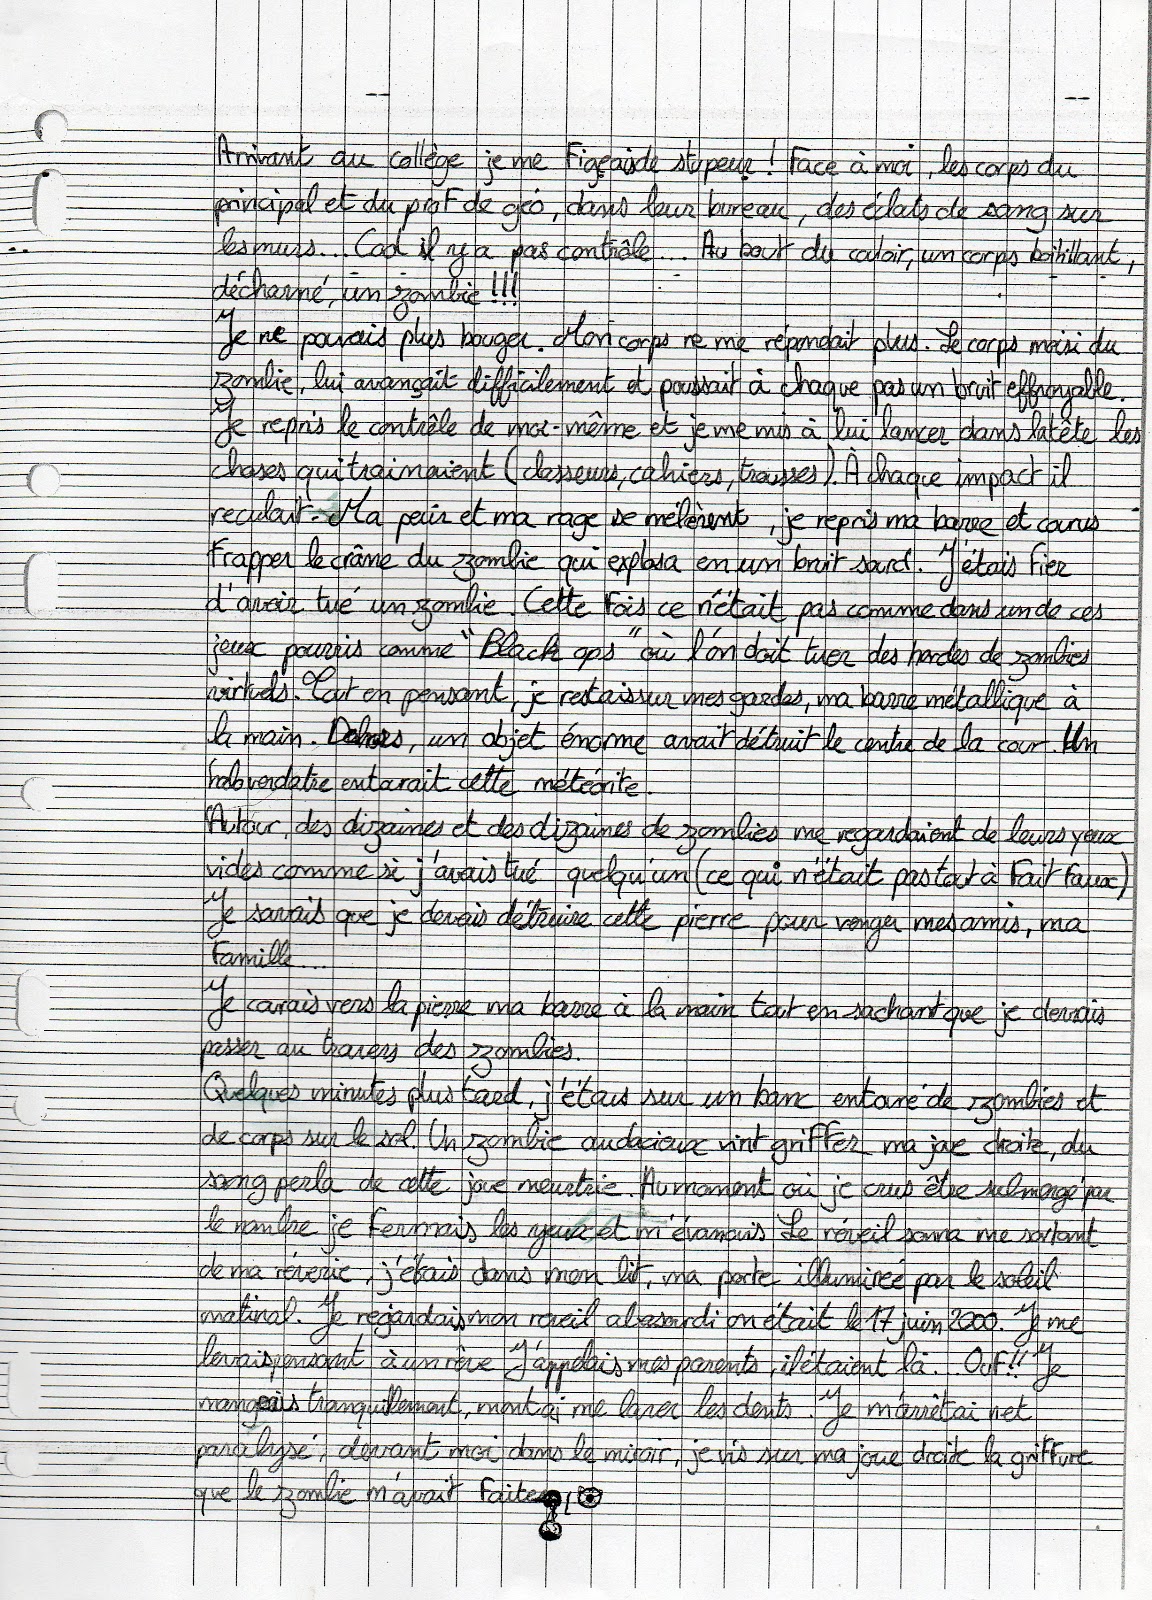 Arrivant au collège je me Figeais de stupeur ! Face à moi, les corps du
principal et du prof de géo, dans leur bureau, des éclats de sang sur
les murs... Cool il y a pas contrôle... Au bout du couloir, un corps boitillant,
décharné, un zombie !!!
Je ne pouvais plus bouger. Mon corps ne me répondait plus. Le corps moisi du
zombie, lui avançait difficilement et poussait à chaque pas un bruit effroyable.
Je repris le contrôle de moi-même et je me mis à lui lancer dans la tête les
choses qui trainaient (classeurs, cahiers, trousses). À chaque impact il
reculait. Ma peur et ma rage se mélèrent, je repris ma barre et courus
Frapper le crâme du zombie qui explosa en un bruit sourd. J'étais Fier
d'avoir tué un zombie. Cette Fois ce n'était pas comme dans un de ces
jeux pourris comme "Black ops" où l'on doit tuer des hordes de zombies
virtuels. Tout en pensant, je restais sur mes gardes, ma barre métallique à
la main. Dehors, un objet énorme avait détruit le centre de la cour. Un
halo verdatre entourait cette météorite.
Autour, des dizaines et des dizaines de zombies me regardaient de leurs yeux
vides comme si j'avais tué quelqu'un (ce qui n'était pas tout à Fait Faux)
Je savais que je devais détruire cette pierre pour venger mes amis, ma
Famille...
Je courais vers la pierre ma barre à la main tout en sachant que je devrais
passer au travers des zombies.
Quelques minutes plus tard, j'étais sur un banc entouré de zombies et
de corps sur le sol. Un zombie audacieux vint griffer ma joue droite, du
sang perla de cette joue meurtrie. Au moment où je crus être submergé par
le nombre je Fermais les yeux et m'évanouis Le réveil sonna me sortant
de ma réverie, j'étais dans mon lit, ma porte illuminée par le soleil
matinal. Je regardais mon reveil abasourdi on était le 17 juin 2000. Je me
levais pensant à un rêve J'appelais mes parents, il étaient là... Ouf !! Je
mangeais tranquillement, montai me laver les dents. Je m'arrêtai net
paralysé, devant moi dans le miroir, je vis sur ma joue droite la griffure
que le zombie m'avait Faite